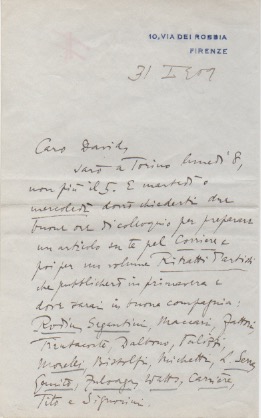 10, VIA DEI ROBBIA
FIRENZE
31 I 909
Caro Davide,
sarò a Torino lunedì 8,
non più il 5. E martedì o
mercoledì dovrò chiederti due
buone ore di colloquio per preparare
un articolo su te pel Corriere e
poi per un volume Ritratti d'artisti
che pubblicherò in primavera e
dove sarai in buona compagnia:
Rodin, Segantini, Maccari, Fattori
Trentacoste, Dalbono, Palizzi
Morelli, Bistolfi, Michetti, L. Serra
Gemito, Zuloaga, Watts, Carrière,
Tito e Signorini.